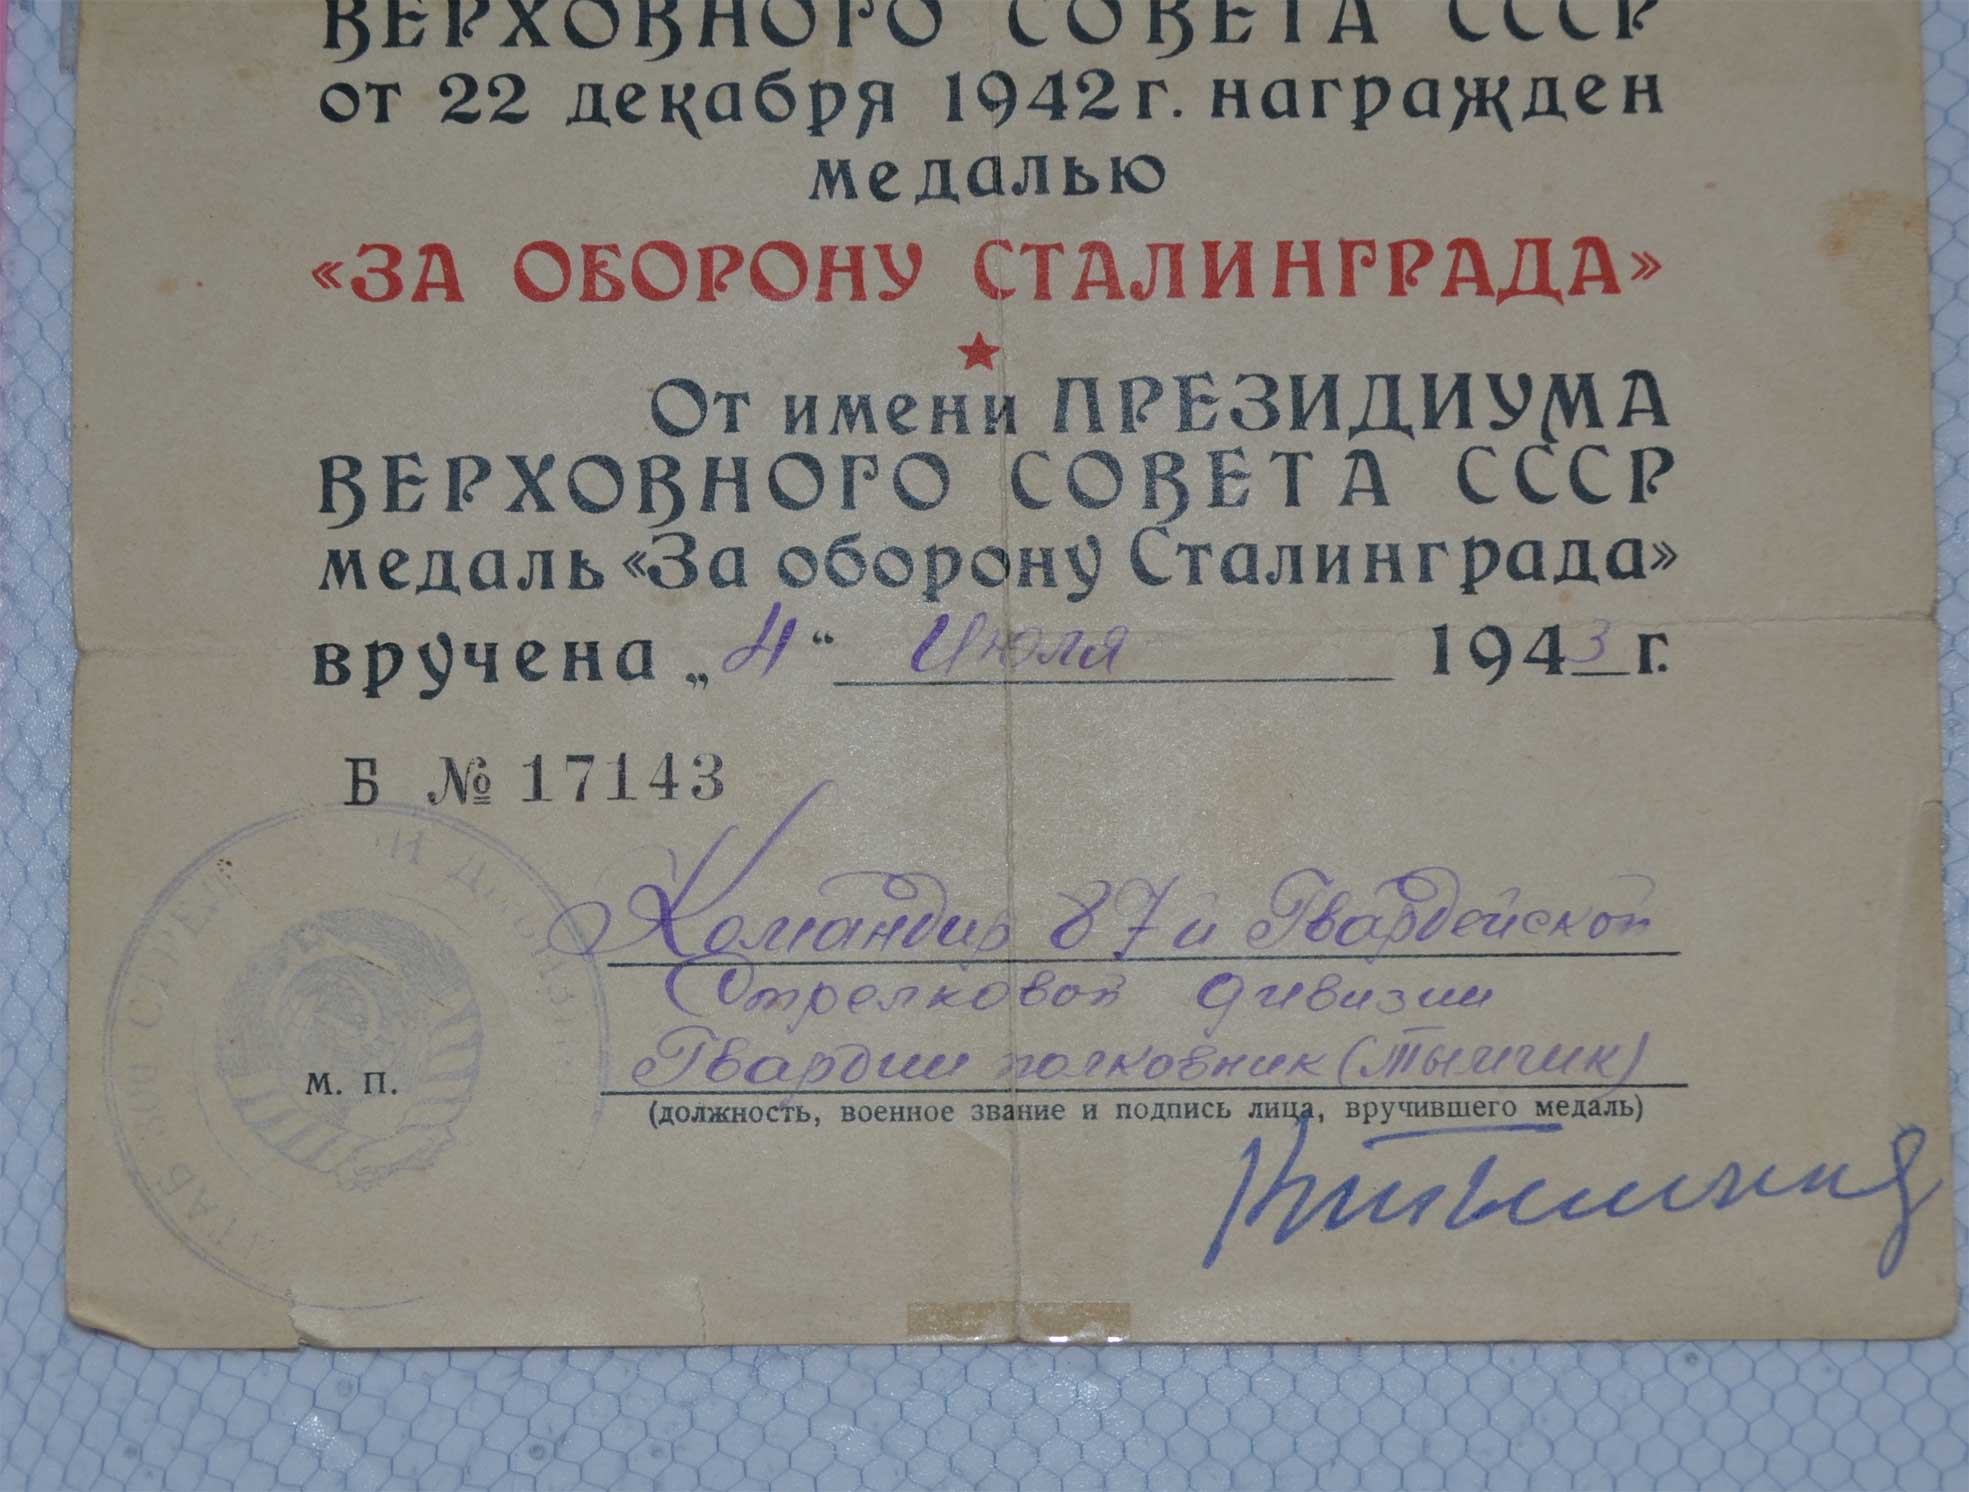 ВЕРХОВНОГО СОВЕТА СССР
от 22 декабря 1942 г. награжден
медалью
«ЗА ОБОРОНУ СТАЛИНГРАДА»
От имени ПРЕЗИДИУМА
ВЕРХОВНОГО СОВЕТА СССР
медаль «За оборону Сталинграда»
вручена „4“ Июля 1943 г.
Б № 17143
Командир 87й Гвардейской
Стрелковой дивизии
Гвардии полковник (Тымчик)
м. п.
(должность, военное звание и подпись лица, вручившего медаль)